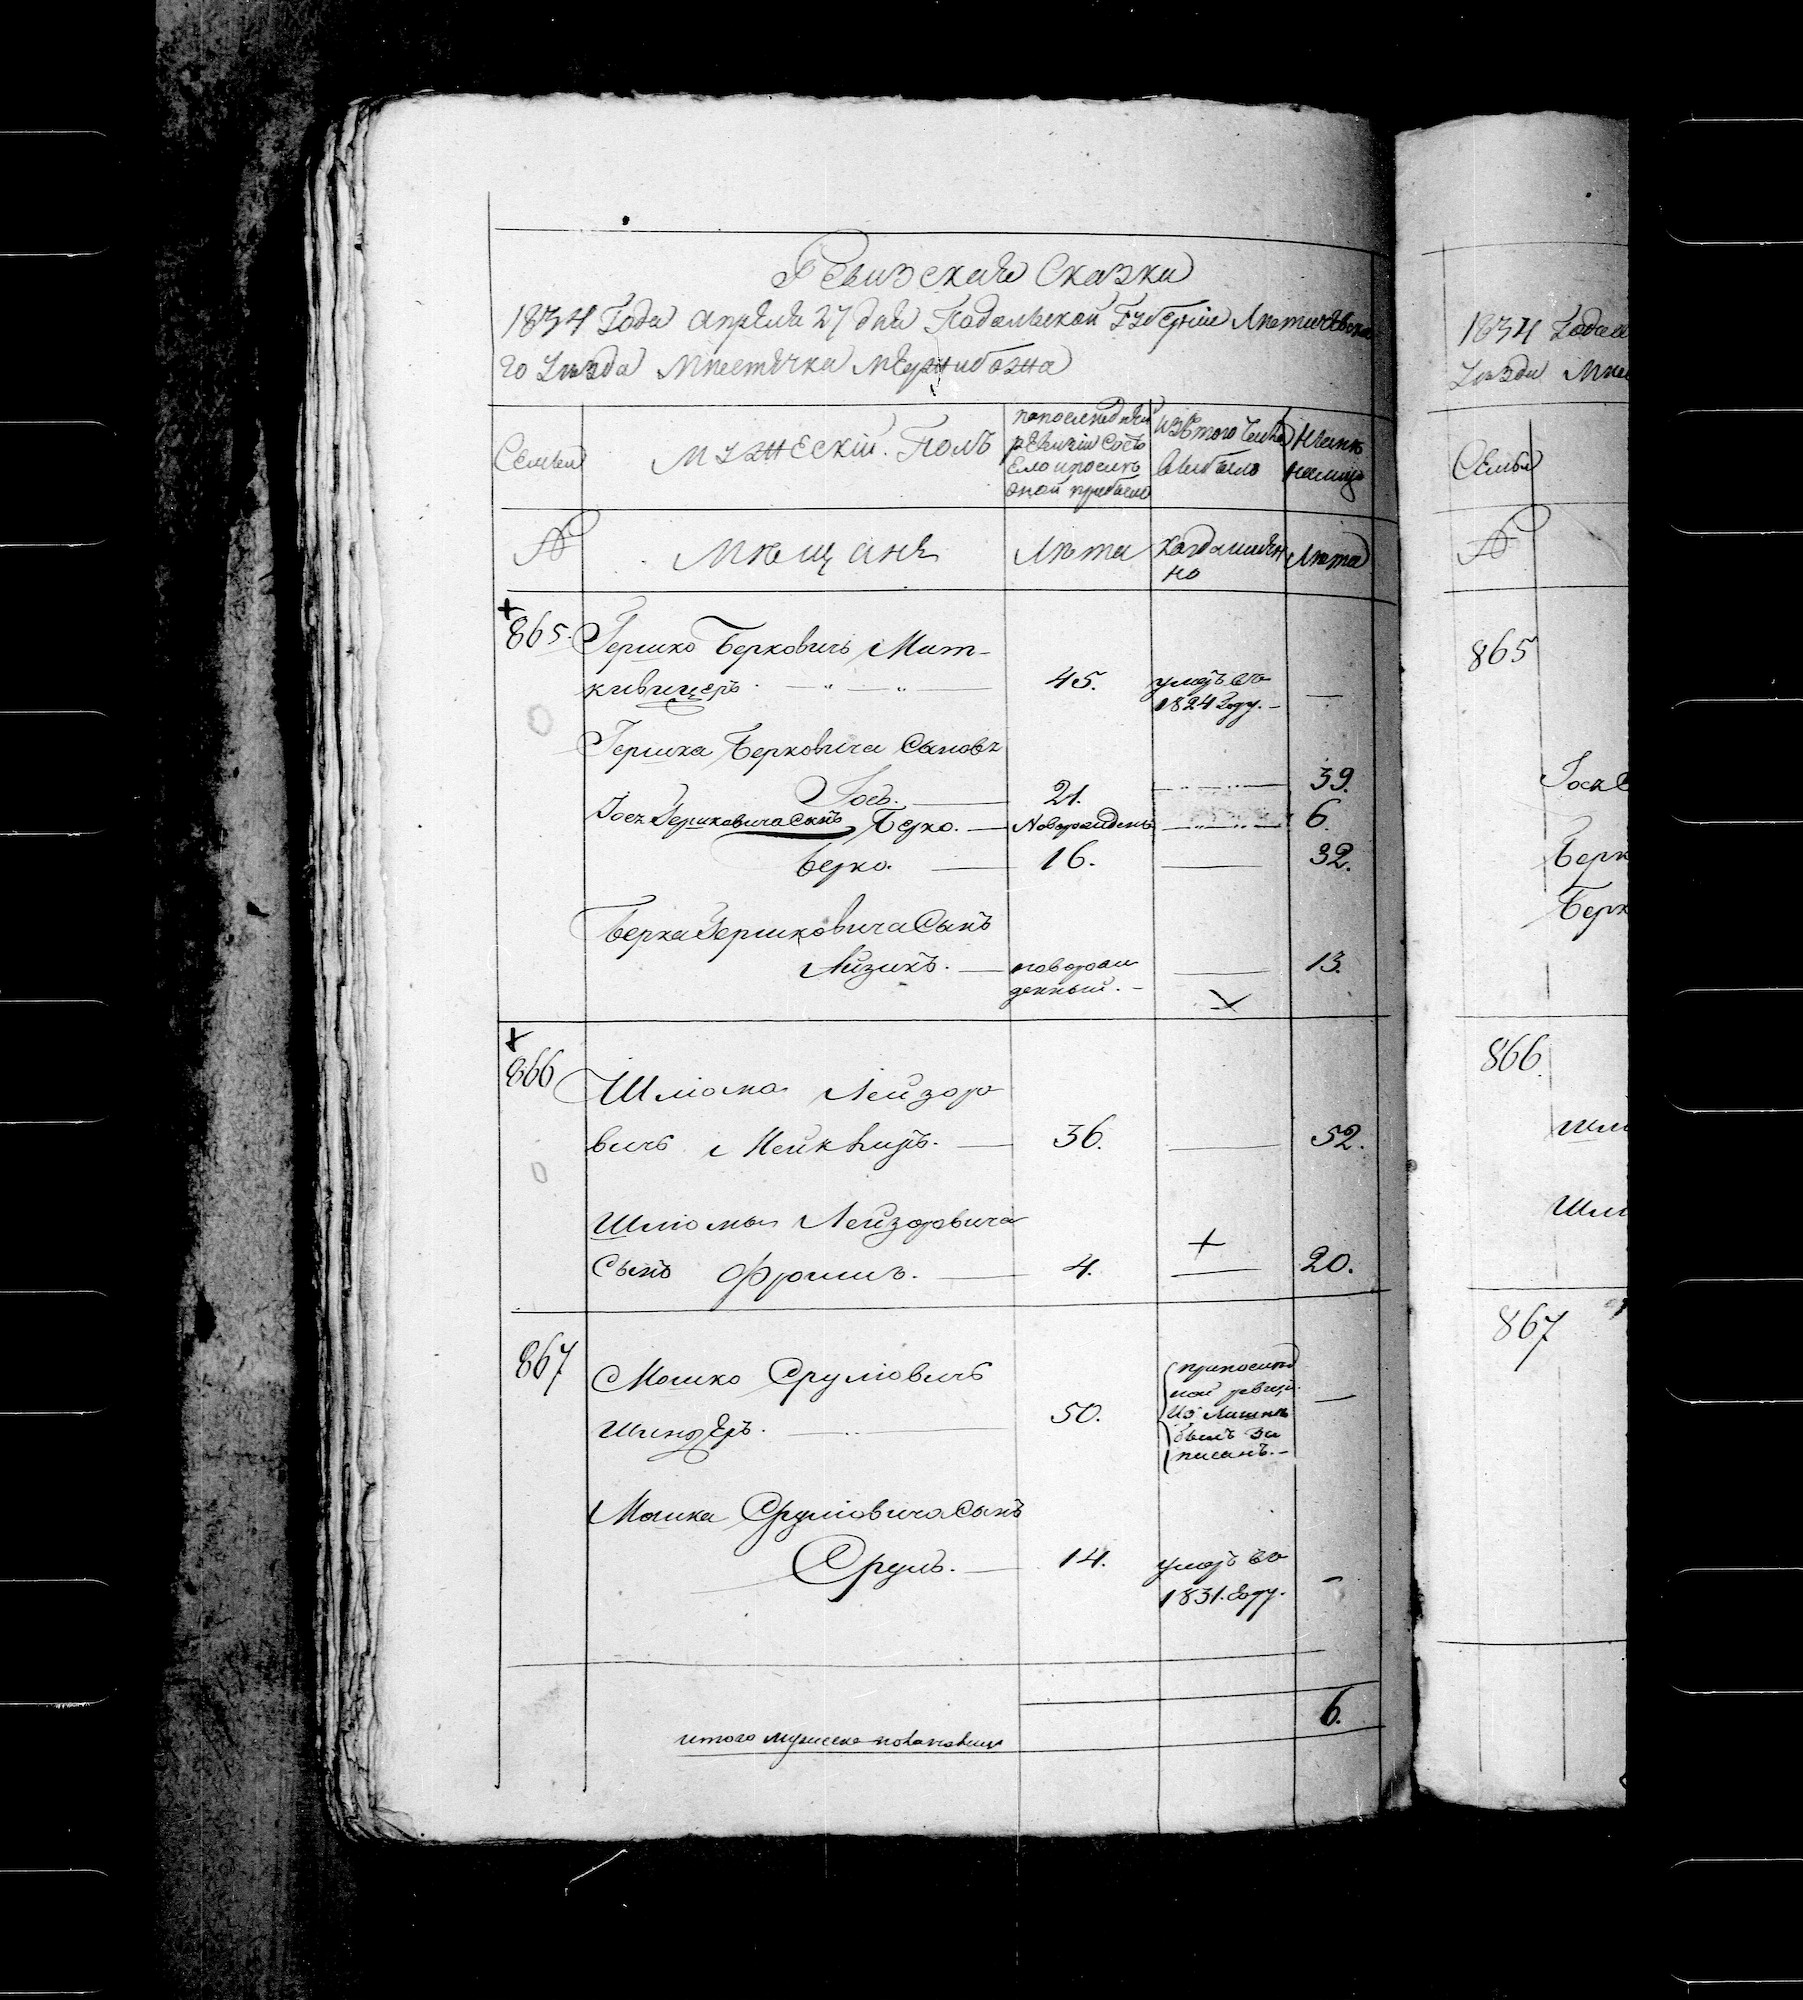 Ревизская Сказка
1834 Года апреля 27 дня Подольской Губерніи Летичевска
го Уезда Мѣстечка Мєджибожа
Семьи
Мужескій. Полъ
по последней
ревизіи состо
яло и после
оной прибыло
Изъ того числа
выбыло
Ныне
налицо
№
Мѣщане
Лѣта
Когда имян
но
Лѣта
865. Гершко Берковичь Мит-
кивицеръ. 45. умеръ въ —
1824 году. -
Гершка Берковича Сыновя
Іось. 21. 39.
Іося Гершковича Сынъ Берко. Новорожденъ 6.
Берко. 16. 32.
Берка Гершковича Сынъ
Айзикъ. новорож 13.
денный. -
866 Шліома Лейзоро
вичь 36. 52.
Шліомы Лейзоровича
Сынъ Фроимъ. 4. 20.
867 Мошко Сруліовичь
50.
былъ за
писанъ. -
Мошка Сруліовича Сынъ
Сруль. 14. умеръ въ -
1831. году.
6.
итого мужеска пола наличныхъ
1834 Года
Уезда Мѣс
Семьи
№
865
Іося
Берк
Берк
866
Шлі
Шлі
867